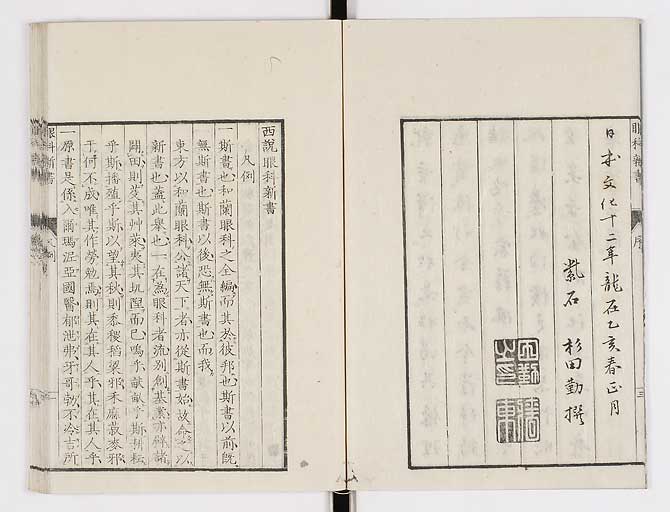 日本文化十二年龍在乙亥春正月
紫石 杉田勤撰
眼科新書
序
西說眼科新書
凡例
一斯書也和蘭眼科之全編而其於彼邦也斯書以前既
無斯書也斯書以後恐無斯書也而我
東方以和蘭眼科公諸天下者亦從斯書始故命之以
新書也蓋此舉也一在為眼科者流別創基業亦肆諸
闢田則芟其艸萊夷其坑隉而已嗚乎獻畝乎斯耕耘
乎斯播殖乎斯以望其秋則黍稷稻粱邪禾麻菽麥邪
于何不成唯其作勞勉焉則其在其人乎其在其人乎
一原書是係入爾瑪泥亞國醫郁泄弗牙哥勃不冷吉所
眼科新書
凡例